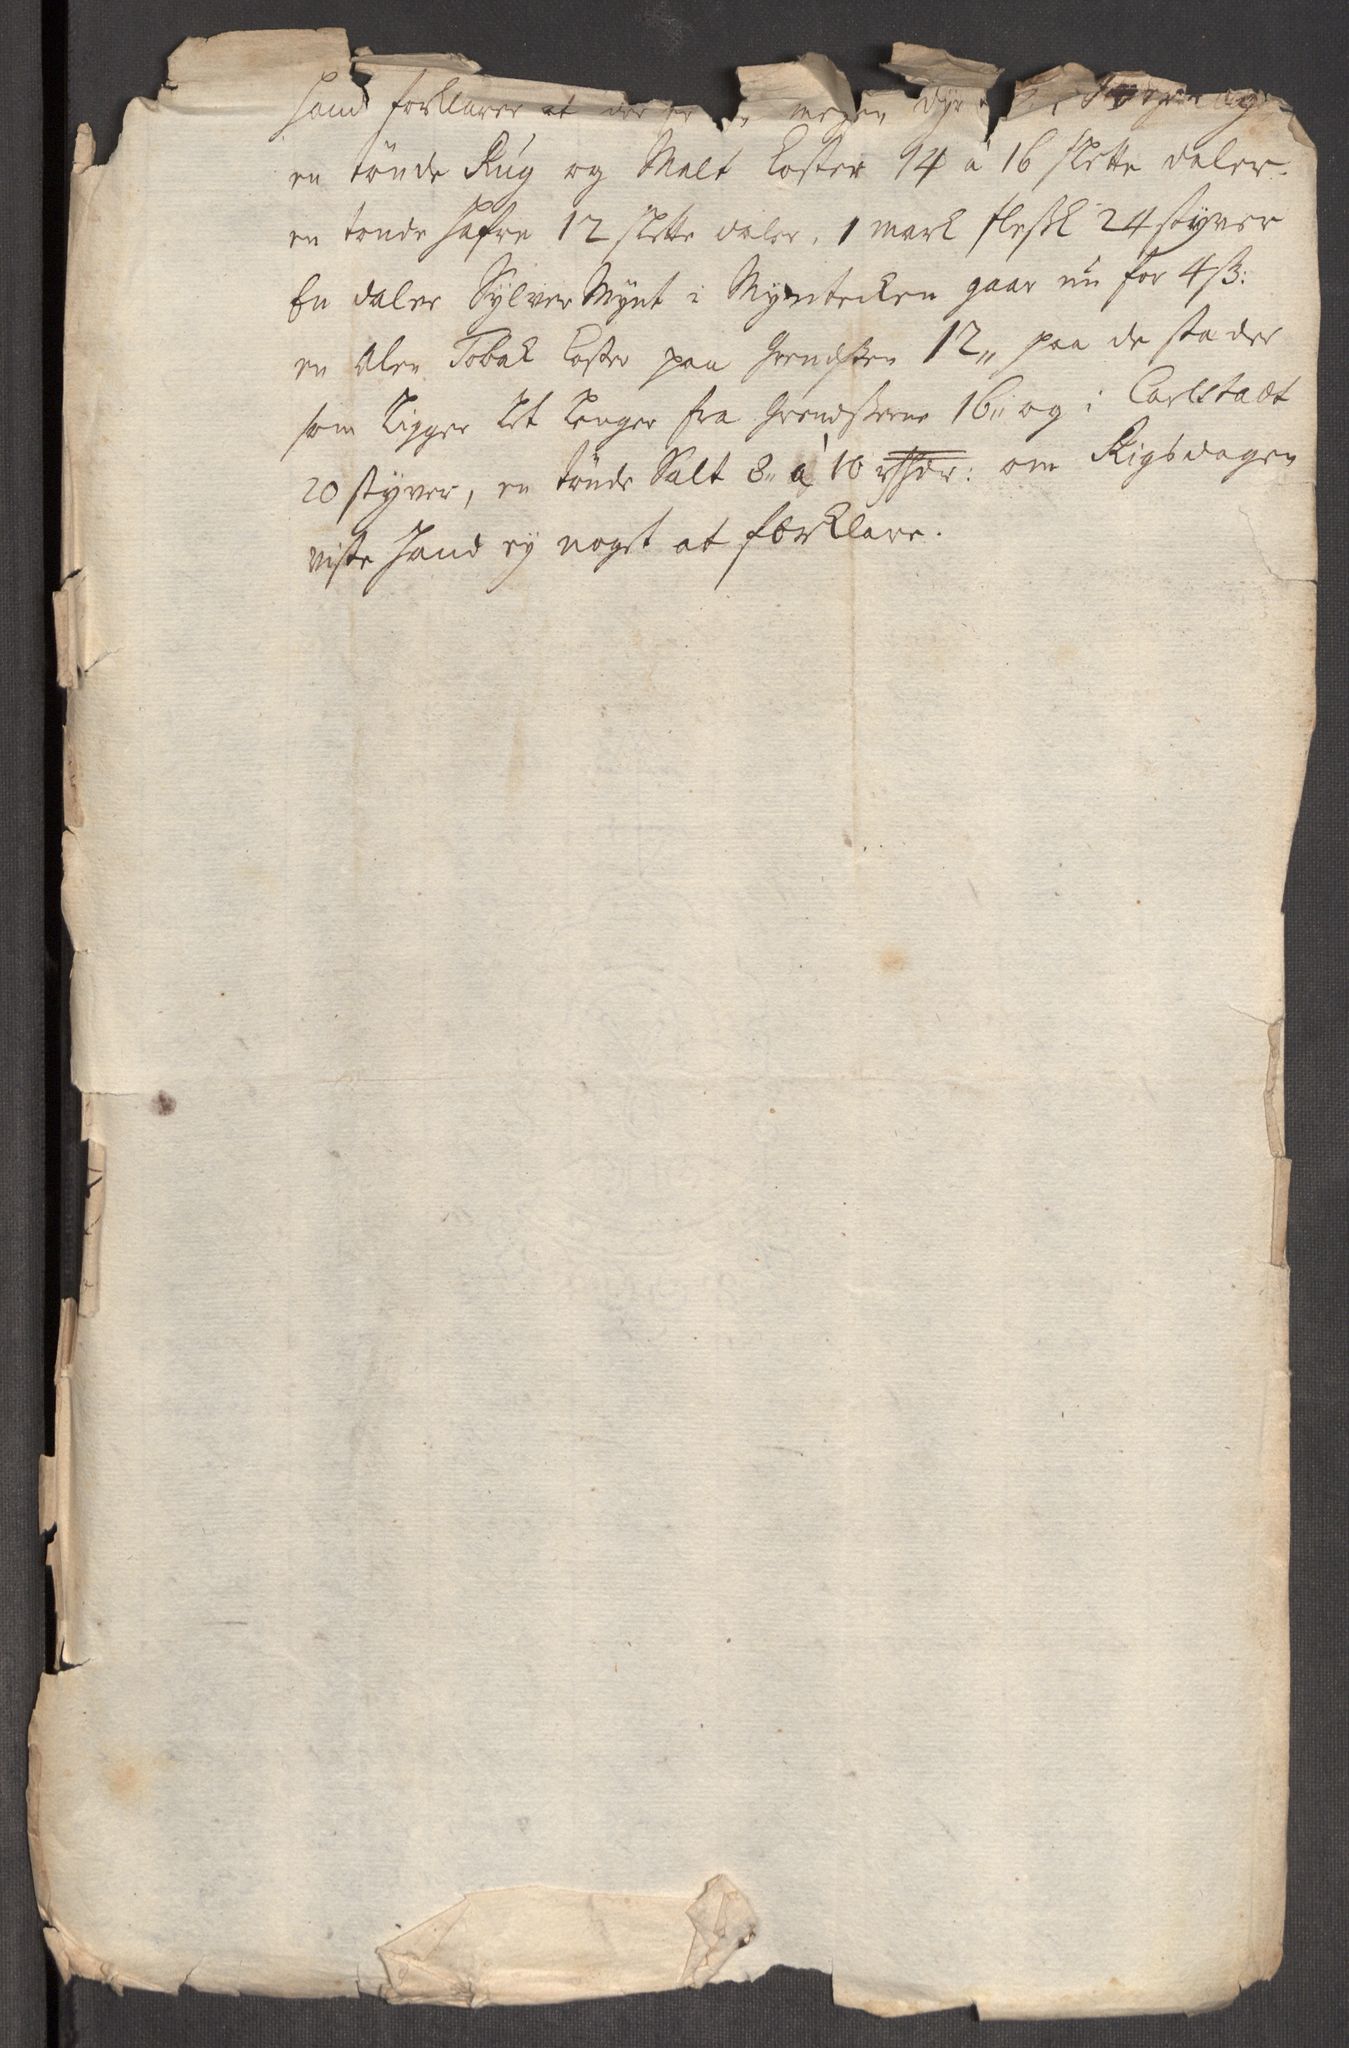 Hand forklarer at der er en megen dyr i Sverrig
en tönde Rúg og Malt koster 14 à 16 slette daler.
en tonde Hafre 12 slette daler, 1 mark flesk 24 styver
En daler Sylver Mÿnt i Myntecken gaar nú for 4 ß:
en Alen Toback koster paa Grendsen 12,, paa de stader
som Ligger Lit Lenger fra Grendserne 16,, og i Carlstadt
20 styver, en tönde Salt 8,, à 10 rd: om Rigsdagen
viste Hand ey noget at forklare.